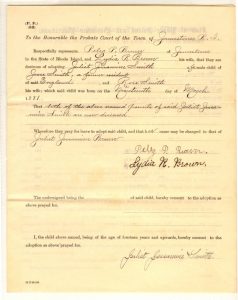 To the Honorable the Probate Court of the Town of Jamestown R. I.:
Respectfully represents Peleg P. Brown of Jamestown
in the State of Rhode Island, and Lydia N. Brown his wife, that they are
desirous of adopting Juliet Jerusann Smith a female child of
Smith, a former resident
of England and Smith
his wife; which said child was born on the day of March
1881
That both of the above named parents of said Juliet
Smith are now deceased.
Wherefore they pray for leave to adopt said child, and that her name may be changed to that of
Juliet Brown
Peleg P. Brown
Lydia N. Brown.
The undersigned being the of said child, hereby consent to the adoption
as above prayed for.
I, the child above named, being of the age of fourteen years and upwards, hereby consent to the
adoption as above prayed for.
Juliet Smith